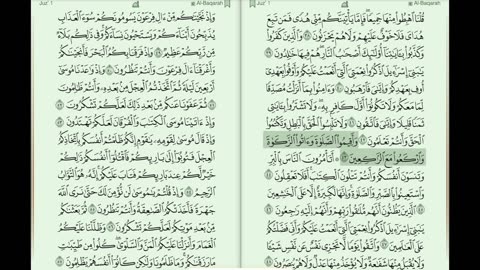 Juz' 1
Al-Baqarah
قُلْنَا ٱهْبِطُوا۟ مِنْهَا جَمِيعًا ۖ فَإِمَّا يَأْتِيَنَّكُم مِّنِّى هُدًى فَمَن تَبِعَ
هُدَاىَ فَلَا خَوْفٌ عَلَيْهِمْ وَلَا هُمْ يَحْزَنُونَ ٣٨ وَٱلَّذِينَ كَفَرُوا۟
وَكَذَّبُوا۟ بِـَٔايَـٰتِنَآ أُو۟لَـٰٓئِكَ أَصْحَـٰبُ ٱلنَّارِ ۖ هُمْ فِيهَا خَـٰلِدُونَ ٣٩
يَـٰبَنِىٓ إِسْرَٰٓءِيلَ ٱذْكُرُوا۟ نِعْمَتِىَ ٱلَّتِىٓ أَنْعَمْتُ عَلَيْكُمْ وَأَوْفُوا۟ بِعَهْدِىٓ
أُوفِ بِعَهْدِكُمْ وَإِيَّـٰىَ فَٱرْهَبُونِ ٤٠ وَءَامِنُوا۟ بِمَآ أَنزَلْتُ مُصَدِّقًا
لِّمَا مَعَكُمْ وَلَا تَكُونُوٓا۟ أَوَّلَ كَافِرٍۭ بِهِۦ ۖ وَلَا تَشْتَرُوا۟ بِـَٔايَـٰتِى
ثَمَنًا قَلِيلًا وَإِيَّـٰىَ فَٱتَّقُونِ ٤١ وَلَا تَلْبِسُوا۟ ٱلْحَقَّ بِٱلْبَـٰطِلِ وَتَكْتُمُوا۟
ٱلْحَقَّ وَأَنتُمْ تَعْلَمُونَ ٤٢ وَأَقِيمُوا۟ ٱلصَّلَوٰةَ وَءَاتُوا۟ ٱلزَّكَوٰةَ
وَٱرْكَعُوا۟ مَعَ ٱلرَّٰكِعِينَ ٤٣ أَتَأْمُرُونَ ٱلنَّاسَ بِٱلْبِرِّ
وَتَنسَوْنَ أَنفُسَكُمْ وَأَنتُمْ تَتْلُونَ ٱلْكِتَـٰبَ ۚ أَفَلَا تَعْقِلُونَ ٤٤
وَٱسْتَعِينُوا۟ بِٱلصَّبْرِ وَٱلصَّلَوٰةِ ۚ وَإِنَّهَا لَكَبِيرَةٌ إِلَّا عَلَى ٱلْخَـٰشِعِينَ ٤٥
ٱلَّذِينَ يَظُنُّونَ أَنَّهُم مُّلَـٰقُوا۟ رَبِّهِمْ وَأَنَّهُمْ إِلَيْهِ رَٰجِعُونَ ٤٦
يَـٰبَنِىٓ إِسْرَٰٓءِيلَ ٱذْكُرُوا۟ نِعْمَتِىَ ٱلَّتِىٓ أَنْعَمْتُ عَلَيْكُمْ وَأَنِّى فَضَّلْتُكُمْ
عَلَى ٱلْعَـٰلَمِينَ ٤٧ وَٱتَّقُوا۟ يَوْمًا لَّا تَجْزِى نَفْسٌ عَن نَّفْسٍ شَيْـًٔا
وَلَا يُقْبَلُ مِنْهَا شَفَـٰعَةٌ وَلَا يُؤْخَذُ مِنْهَا عَدْلٌ وَلَا هُمْ يُنصَرُونَ ٤٨
Juz' 1
Al-Baqarah
وَإِذْ نَجَّيْنَـٰكُم مِّنْ ءَالِ فِرْعَوْنَ يَسُومُونَكُمْ سُوٓءَ ٱلْعَذَابِ
يُذَبِّحُونَ أَبْنَآءَكُمْ وَيَسْتَحْيُونَ نِسَآءَكُمْ ۚ وَفِى ذَٰلِكُم بَلَآءٌ
مِّن رَّبِّكُمْ عَظِيمٌ ٤٩ وَإِذْ فَرَقْنَا بِكُمُ ٱلْبَحْرَ فَأَنجَيْنَـٰكُمْ
وَأَغْرَقْنَآ ءَالَ فِرْعَوْنَ وَأَنتُمْ تَنظُرُونَ ٥٠ وَإِذْ وَٰعَدْنَا مُوسَىٰٓ
أَرْبَعِينَ لَيْلَةً ثُمَّ ٱتَّخَذْتُمُ ٱلْعِجْلَ مِنۢ بَعْدِهِۦ وَأَنتُمْ ظَـٰلِمُونَ
٥١ ثُمَّ عَفَوْنَا عَنكُم مِّنۢ بَعْدِ ذَٰلِكَ لَعَلَّكُمْ تَشْكُرُونَ ٥٢
وَإِذْ ءَاتَيْنَا مُوسَى ٱلْكِتَـٰبَ وَٱلْفُرْقَانَ لَعَلَّكُمْ تَهْتَدُونَ ٥٣
وَإِذْ قَالَ مُوسَىٰ لِقَوْمِهِۦ يَـٰقَوْمِ إِنَّكُمْ ظَلَمْتُمْ أَنفُسَكُم بِٱتِّخَاذِكُمُ
ٱلْعِجْلَ فَتُوبُوٓا۟ إِلَىٰ بَارِئِكُمْ فَٱقْتُلُوٓا۟ أَنفُسَكُمْ ذَٰلِكُمْ خَيْرٌ
لَّكُمْ عِندَ بَارِئِكُمْ فَتَابَ عَلَيْكُمْ ۚ إِنَّهُۥ هُوَ ٱلتَّوَّابُ
ٱلرَّحِيمُ ٥٤ وَإِذْ قُلْتُمْ يَـٰمُوسَىٰ لَن نُّؤْمِنَ لَكَ حَتَّىٰ نَرَى ٱللَّهَ
جَهْرَةً فَأَخَذَتْكُمُ ٱلصَّـٰعِقَةُ وَأَنتُمْ تَنظُرُونَ ٥٥ ثُمَّ بَعَثْنَـٰكُم
مِّنۢ بَعْدِ مَوْتِكُمْ لَعَلَّكُمْ تَشْكُرُونَ ٥٦ وَظَلَّلْنَا عَلَيْكُمُ
ٱلْغَمَامَ وَأَنزَلْنَا عَلَيْكُمُ ٱلْمَنَّ وَٱلسَّلْوَىٰ ۖ كُلُوا۟ مِن طَيِّبَـٰتِ
مَا رَزَقْنَـٰكُمْ ۖ وَمَا ظَلَمُونَا وَلَـٰكِن كَانُوٓا۟ أَنفُسَهُمْ يَظْلِمُونَ ٥٧